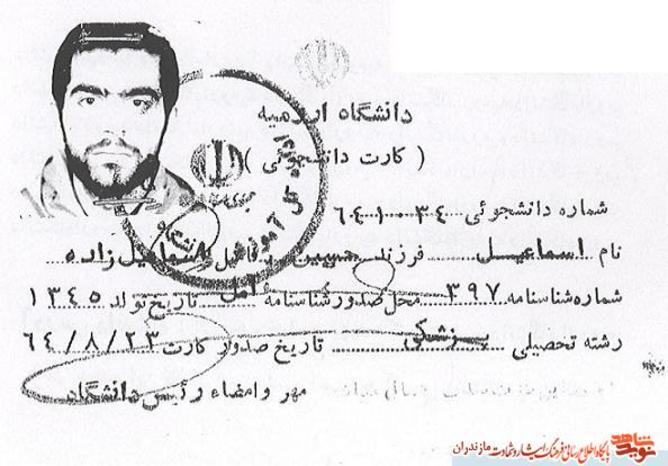 دانشگاه ارومیه
( کارت دانشجوئی )
شماره دانشجوئی ۶۴۱۰۳۴
نام اسماعیل فرزند حسین فامیل اسماعیل زاده
شماره شناسنامه ۳۹۷ محل صدور شناسنامه آمل تاریخ تولد ۱۳۴۵
رشته تحصیلی پزشکی تاریخ صدور کارت ۶۴/۸/۲۳
مهر و امضاء رئیس دانشگاه
اداره کل آموزش
نوید شاهد پایگاه اطلاع رسانی فرهنگ ایثار و شهادت مازندران